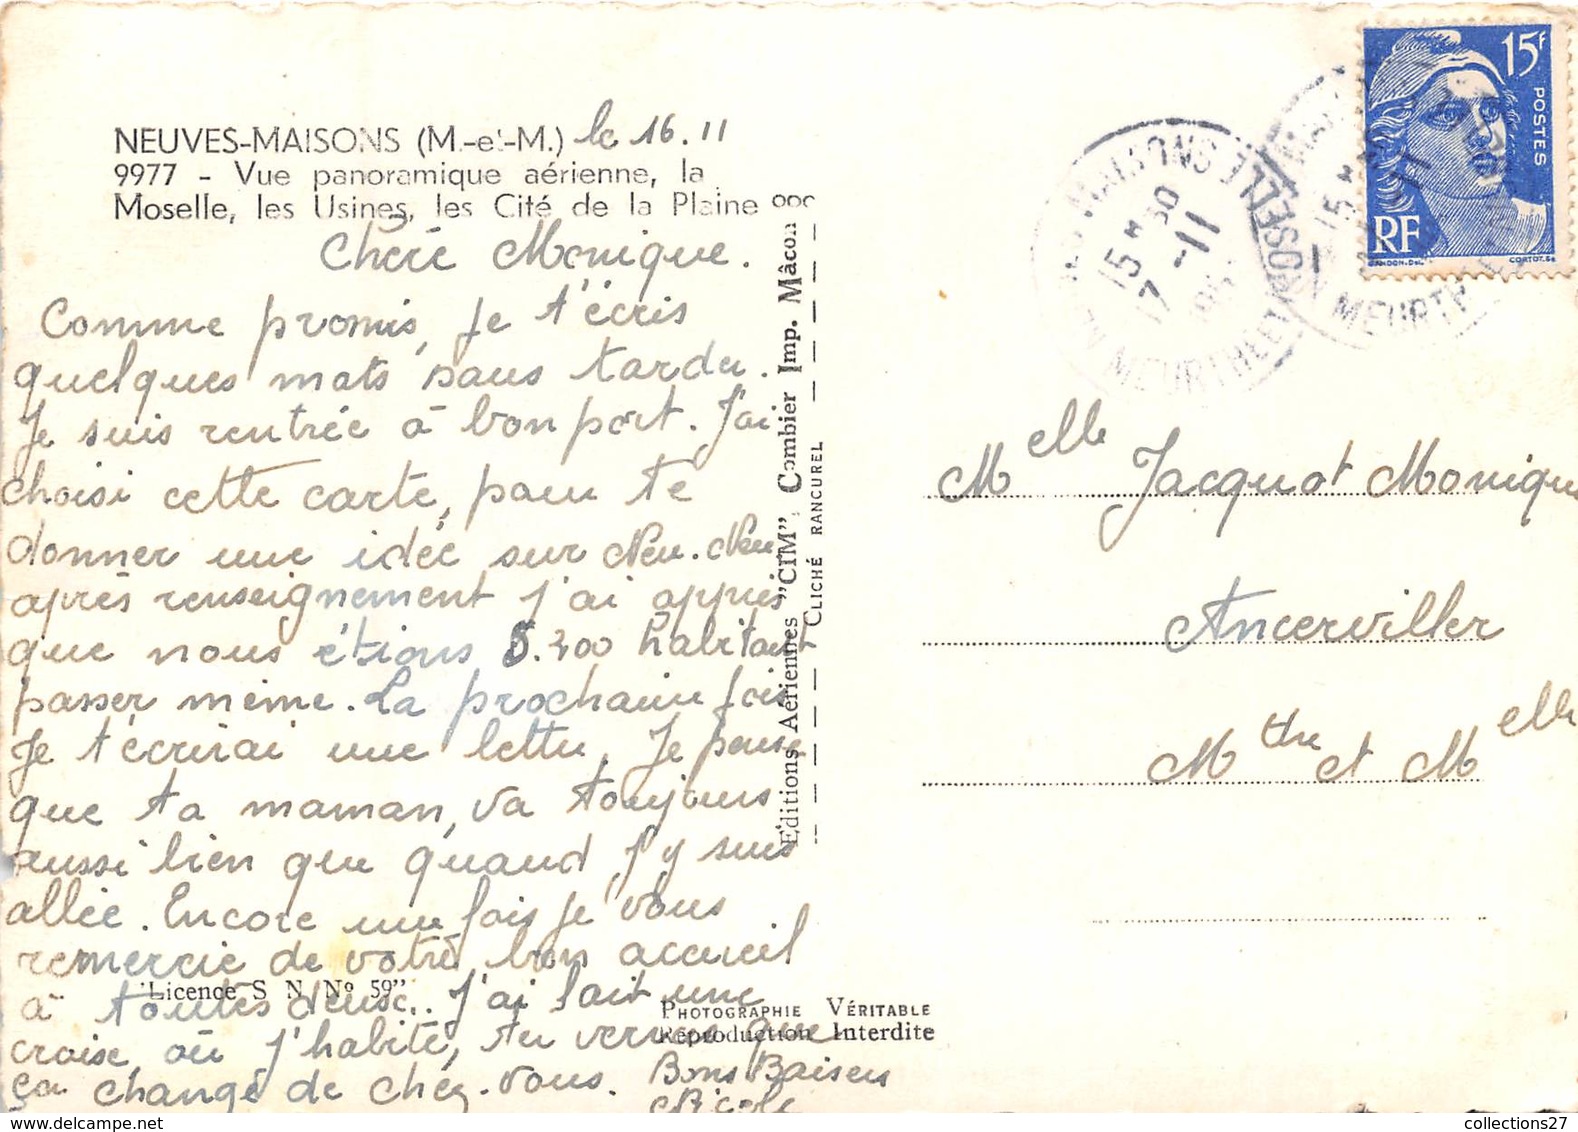 NEUVES-MAISONS (M.-et-M.) le 16.11
9977 - Vue panoramique aérienne, la
Moselle, les Usines, les Cité de la Plaine
Chère Monique.
Comme promis, je t'écris
quelques mots sans tarder.
Je suis rentrée à bon port. J'ai
choisi cette carte, pour te
donner une idée sur Neu. Neu
après renseignement j'ai appris
que nous étions 5.300 habitant
passer même. La prochaine fois
Je t'écrirai une lettre. Je pense
que ta maman, va toujours
aussi bien que quand j'y suis
allée. Encore une fois je vous
remercie de votre bon accueil
à toutes deux. J'ai fait une
croise, où j'habite, tu verras que
ça change de chez-vous.
Bons Baisers
Nicole
"Licence S N Nº 59"
PHOTOGRAPHIE VÉRITABLE
Reproduction Interdite
Editions Aériennes "CIM", Combier Imp. Mâcon
CLICHÉ RANCUREL
15F
POSTES
RF
GANDON-Del.
CORTOT-Sc
MAISONS
15 H 30
17 -11
MEURTHE ET MOSELLE
15 H
MEURTH
Melle Jacquot Monique
Ancerviller
Mthe et Melle
collections27